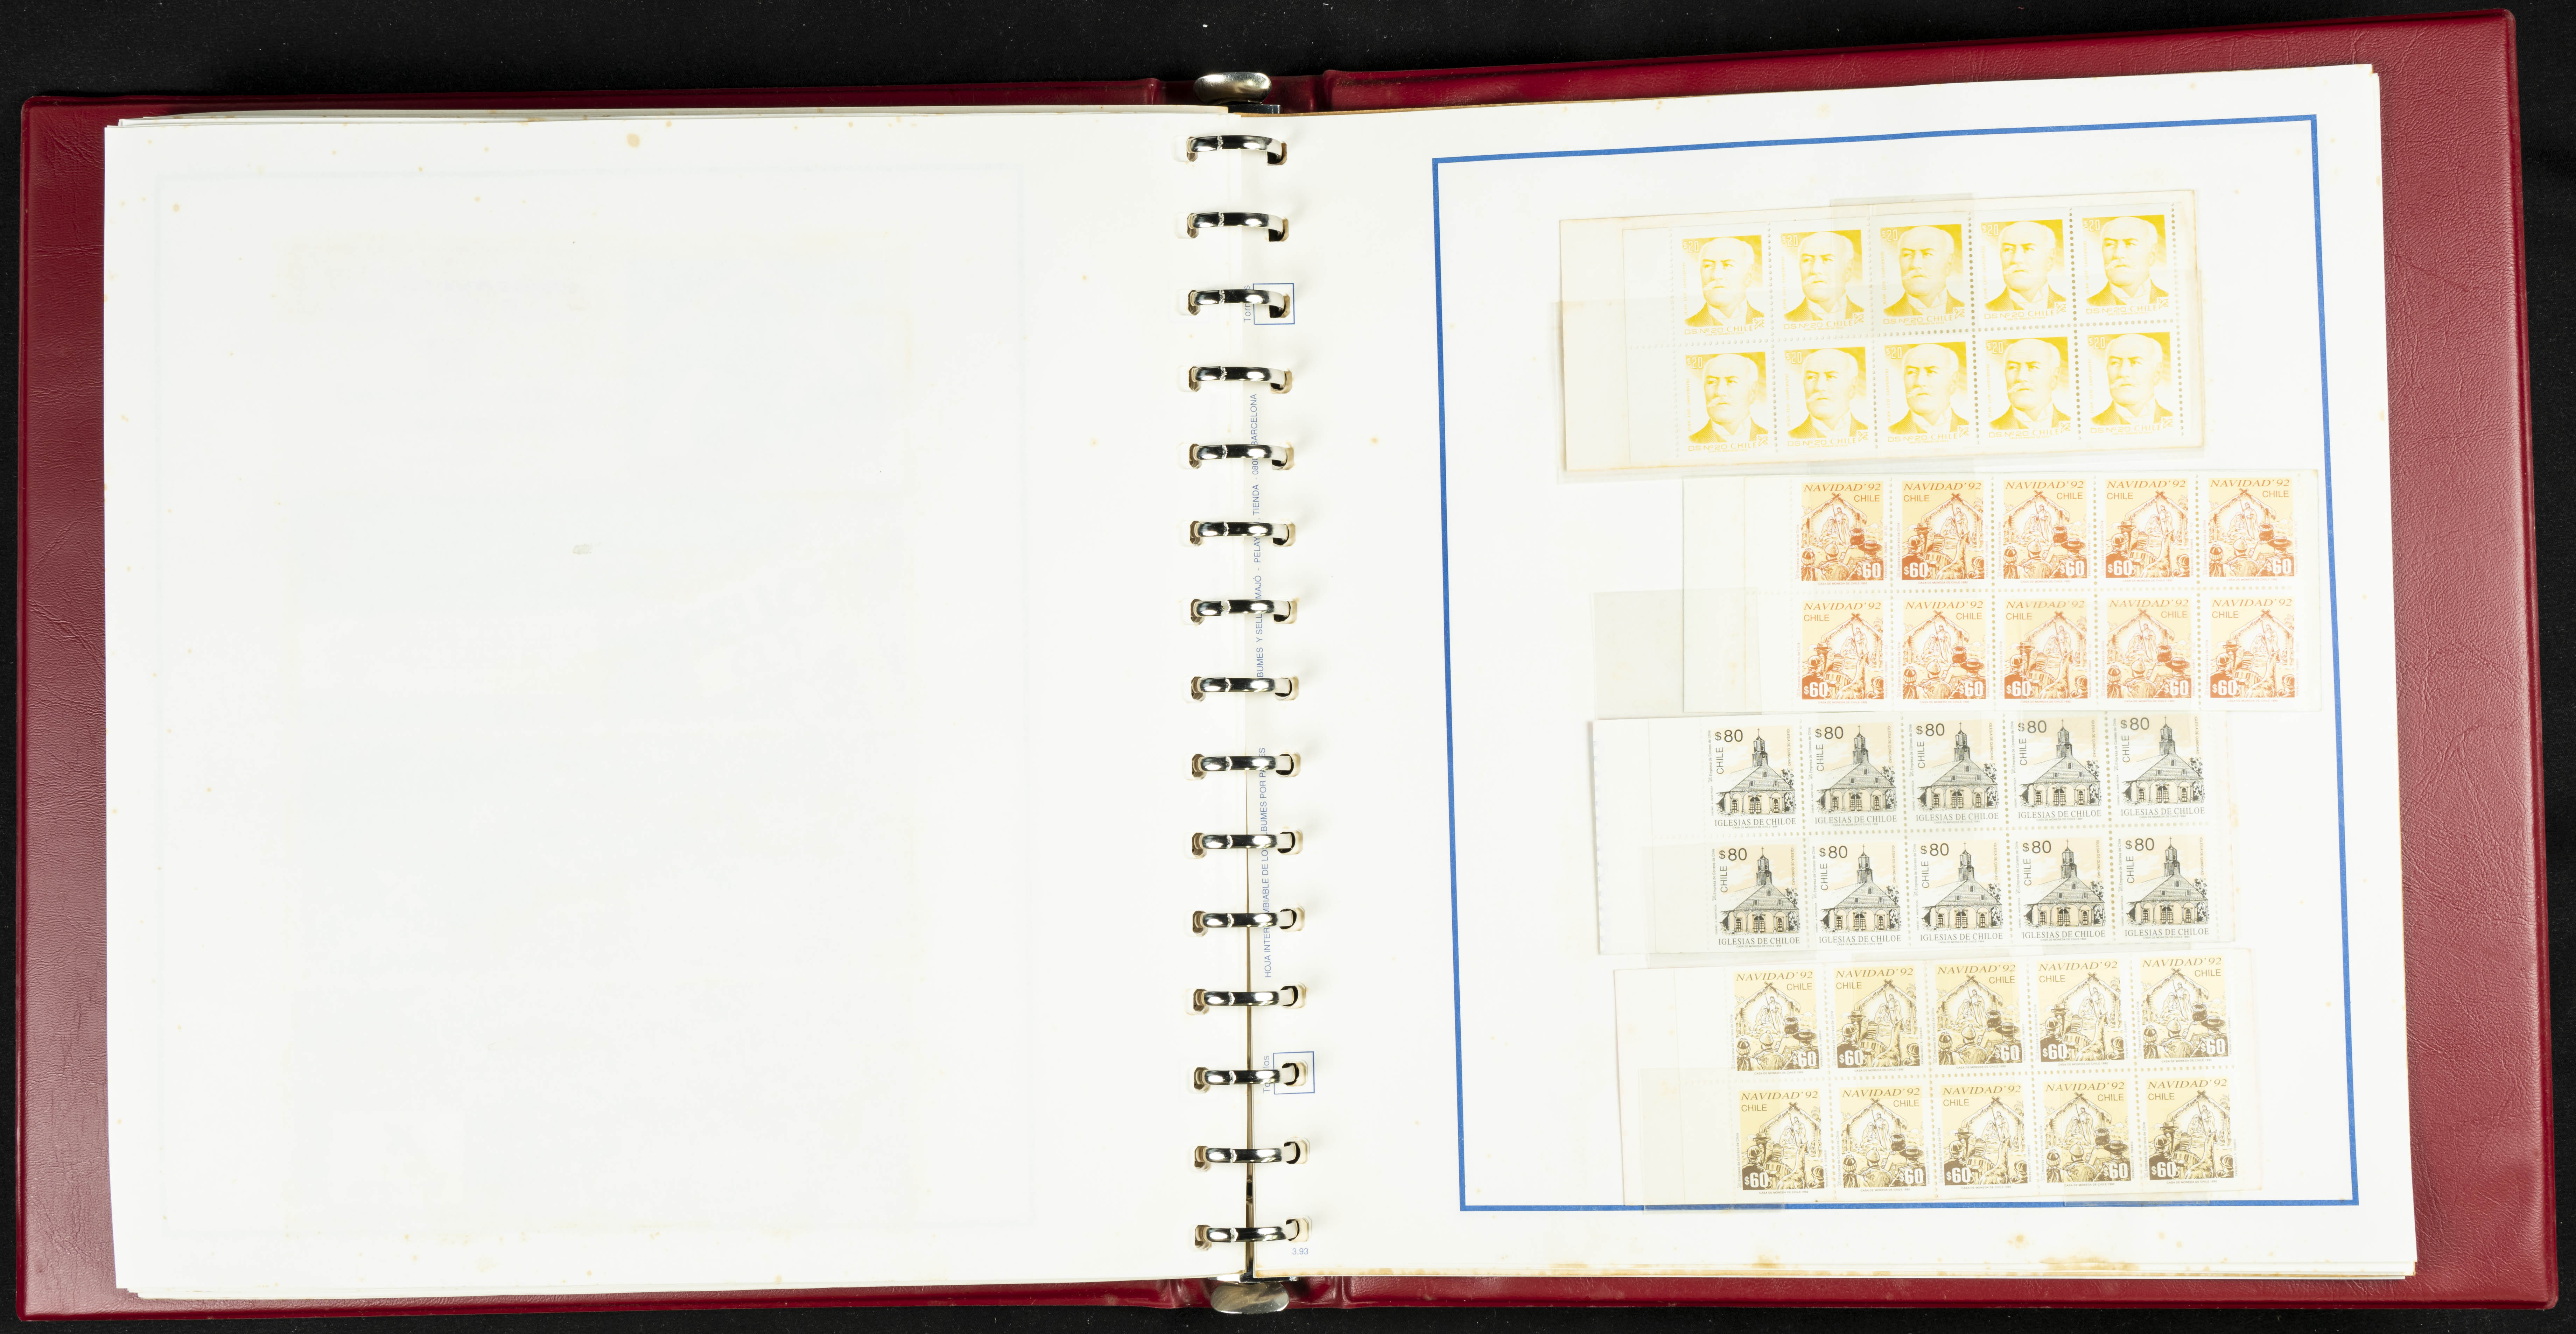 HOJA INTER MBIABLE DE LO LBUMES POR PA ES
BUMES Y SELL MAJÓ - PELAY TIENDA - 080 BARCELONA
3.93
$20 $20 $20 $20 $20
DS Nº 20 CHILE DS Nº 20 CHILE DS Nº 20 CHILE DS Nº 20 CHILE DS Nº 20 CHILE
$20 $20 $20 $20 $20
DS Nº 20 CHILE DS Nº 20 CHILE DS Nº 20 CHILE DS Nº 20 CHILE DS Nº 20 CHILE
NAVIDAD'92 NAVIDAD'92 NAVIDAD'92 NAVIDAD'92 NAVIDAD'92
CHILE CHILE CHILE CHILE CHILE
$60 $60 $60 $60 $60
NAVIDAD'92 NAVIDAD'92 NAVIDAD'92 NAVIDAD'92 NAVIDAD'92
CHILE CHILE CHILE CHILE CHILE
$60 $60 $60 $60 $60
$80 $80 $80 $80 $80
CHILE CHILE CHILE CHILE CHILE
IGLESIAS DE CHILOE IGLESIAS DE CHILOE IGLESIAS DE CHILOE IGLESIAS DE CHILOE IGLESIAS DE CHILOE
$80 $80 $80 $80 $80
CHILE CHILE CHILE CHILE CHILE
IGLESIAS DE CHILOE IGLESIAS DE CHILOE IGLESIAS DE CHILOE IGLESIAS DE CHILOE IGLESIAS DE CHILOE
NAVIDAD'92 NAVIDAD'92 NAVIDAD'92 NAVIDAD'92 NAVIDAD'92
CHILE CHILE CHILE CHILE CHILE
$60 $60 $60 $60 $60
NAVIDAD'92 NAVIDAD'92 NAVIDAD'92 NAVIDAD'92 NAVIDAD'92
CHILE CHILE CHILE CHILE CHILE
$60 $60 $60 $60 $60